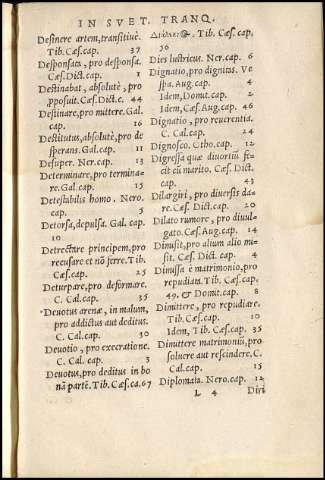 IN SVET. TRANQ.
Desinere artem, transitiuè.
Tib. Cæs. cap. 37
Desponsata, pro desponsa.
Cæs. Dict. cap. 1
Destinabat, absolutè, pro
pposuit. Cæs. Dict. c. 44
Destinare, pro mittere. Gal.
cap. 16
Destitutus, absolutè, pro de
sperans. Gal. cap. 11
Desuper. Ner. cap. 13
Determinare, pro termina-
re. Gal. cap. 15
Detestabilis homo. Nero.
cap. 3
Detorsa, depulsa. Gal. cap.
10
Detrectare principem, pro
recusare et nõ ferre. Tib.
Cæs. cap. 25
Deturpare, pro deformare.
C. Cal. cap. 35
Deuotus arenæ, in malum,
pro addictus aut deditus.
C. Cal. cap. 30
Deuotio, pro execratione.
C. Cal. cap. 3
Deuotus, pro deditus in bo
nã partẽ. Tib. Cæs. ca. 67
Tib. Cæs. cap.
36
Dies lustricus. Ner. cap. 6
Dignatio, pro dignitas. Ve
spa. Aug. cap. 4
Idem, Domit. cap. 2
Idem, Cæs. Aug. cap. 46
Dignatio, pro reuerentia.
C. Cal. cap. 24
Dignosco. Otho. cap. 12
Digressa quæ diuortiũ fe-
cit cũ marito. Cæs. Dict.
cap. 43
Dilargiri, pro diuersis da-
re. Cæs. Dict. cap. 20
Dilato rumore, pro diuul-
gato. Cæs. Aug. cap. 14
Dimisit, pro alium alio mi-
sit. Cæs. Dict. cap. 4
Dimissa è matrimonio, pro
repudiata. Tib. Cæs. cap.
49. & Domit. cap. 8
Dimittere, pro repudiare.
Tib. cap. 10
Idem, Tib. Cæs. cap. 35
Dimittere matrimoniũ, pro
soluere aut rescindere. C.
Cal. cap. 25
Diplomata. Nero. cap. 12
L 4 Diri